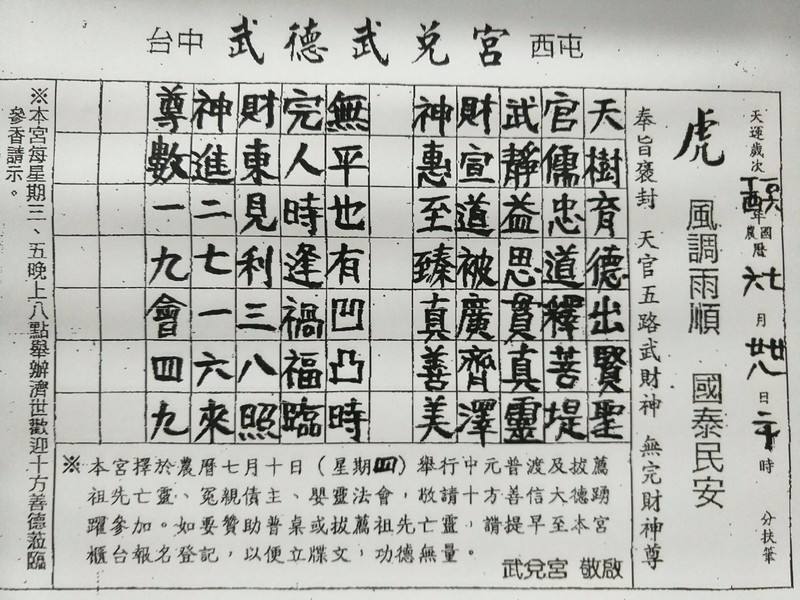 台中 武德武兌宮 西屯
天運歲次
年
國曆
農
月
日
時
分扶筆
虎 風調雨順 國泰民安
奉旨褒封 天官五路武財神 無完財神尊
天樹育德出賢聖
官儒忠道釋菩堤
武靜益思貫真靈
財宣道被廣齊澤
神惠至臻真善美
無平也有凹凸時
完人時逢禍福臨
財東見利三八照
神進二七一六來
尊數一九會四九
※本宮每星期三、五晚上八點舉辦濟世歡迎十方善德蒞臨
參香請示。
※本宮擇於農曆七月十日（星期四）舉行中元普渡及拔薦
祖先亡靈、冤親債主、嬰靈法會，敬請十方善信大德踴
躍參加。如要贊助普桌或拔薦祖先亡靈，請提早至本宮
櫃台報名登記，以便立牒文，功德無量。
武兌宮 敬啟